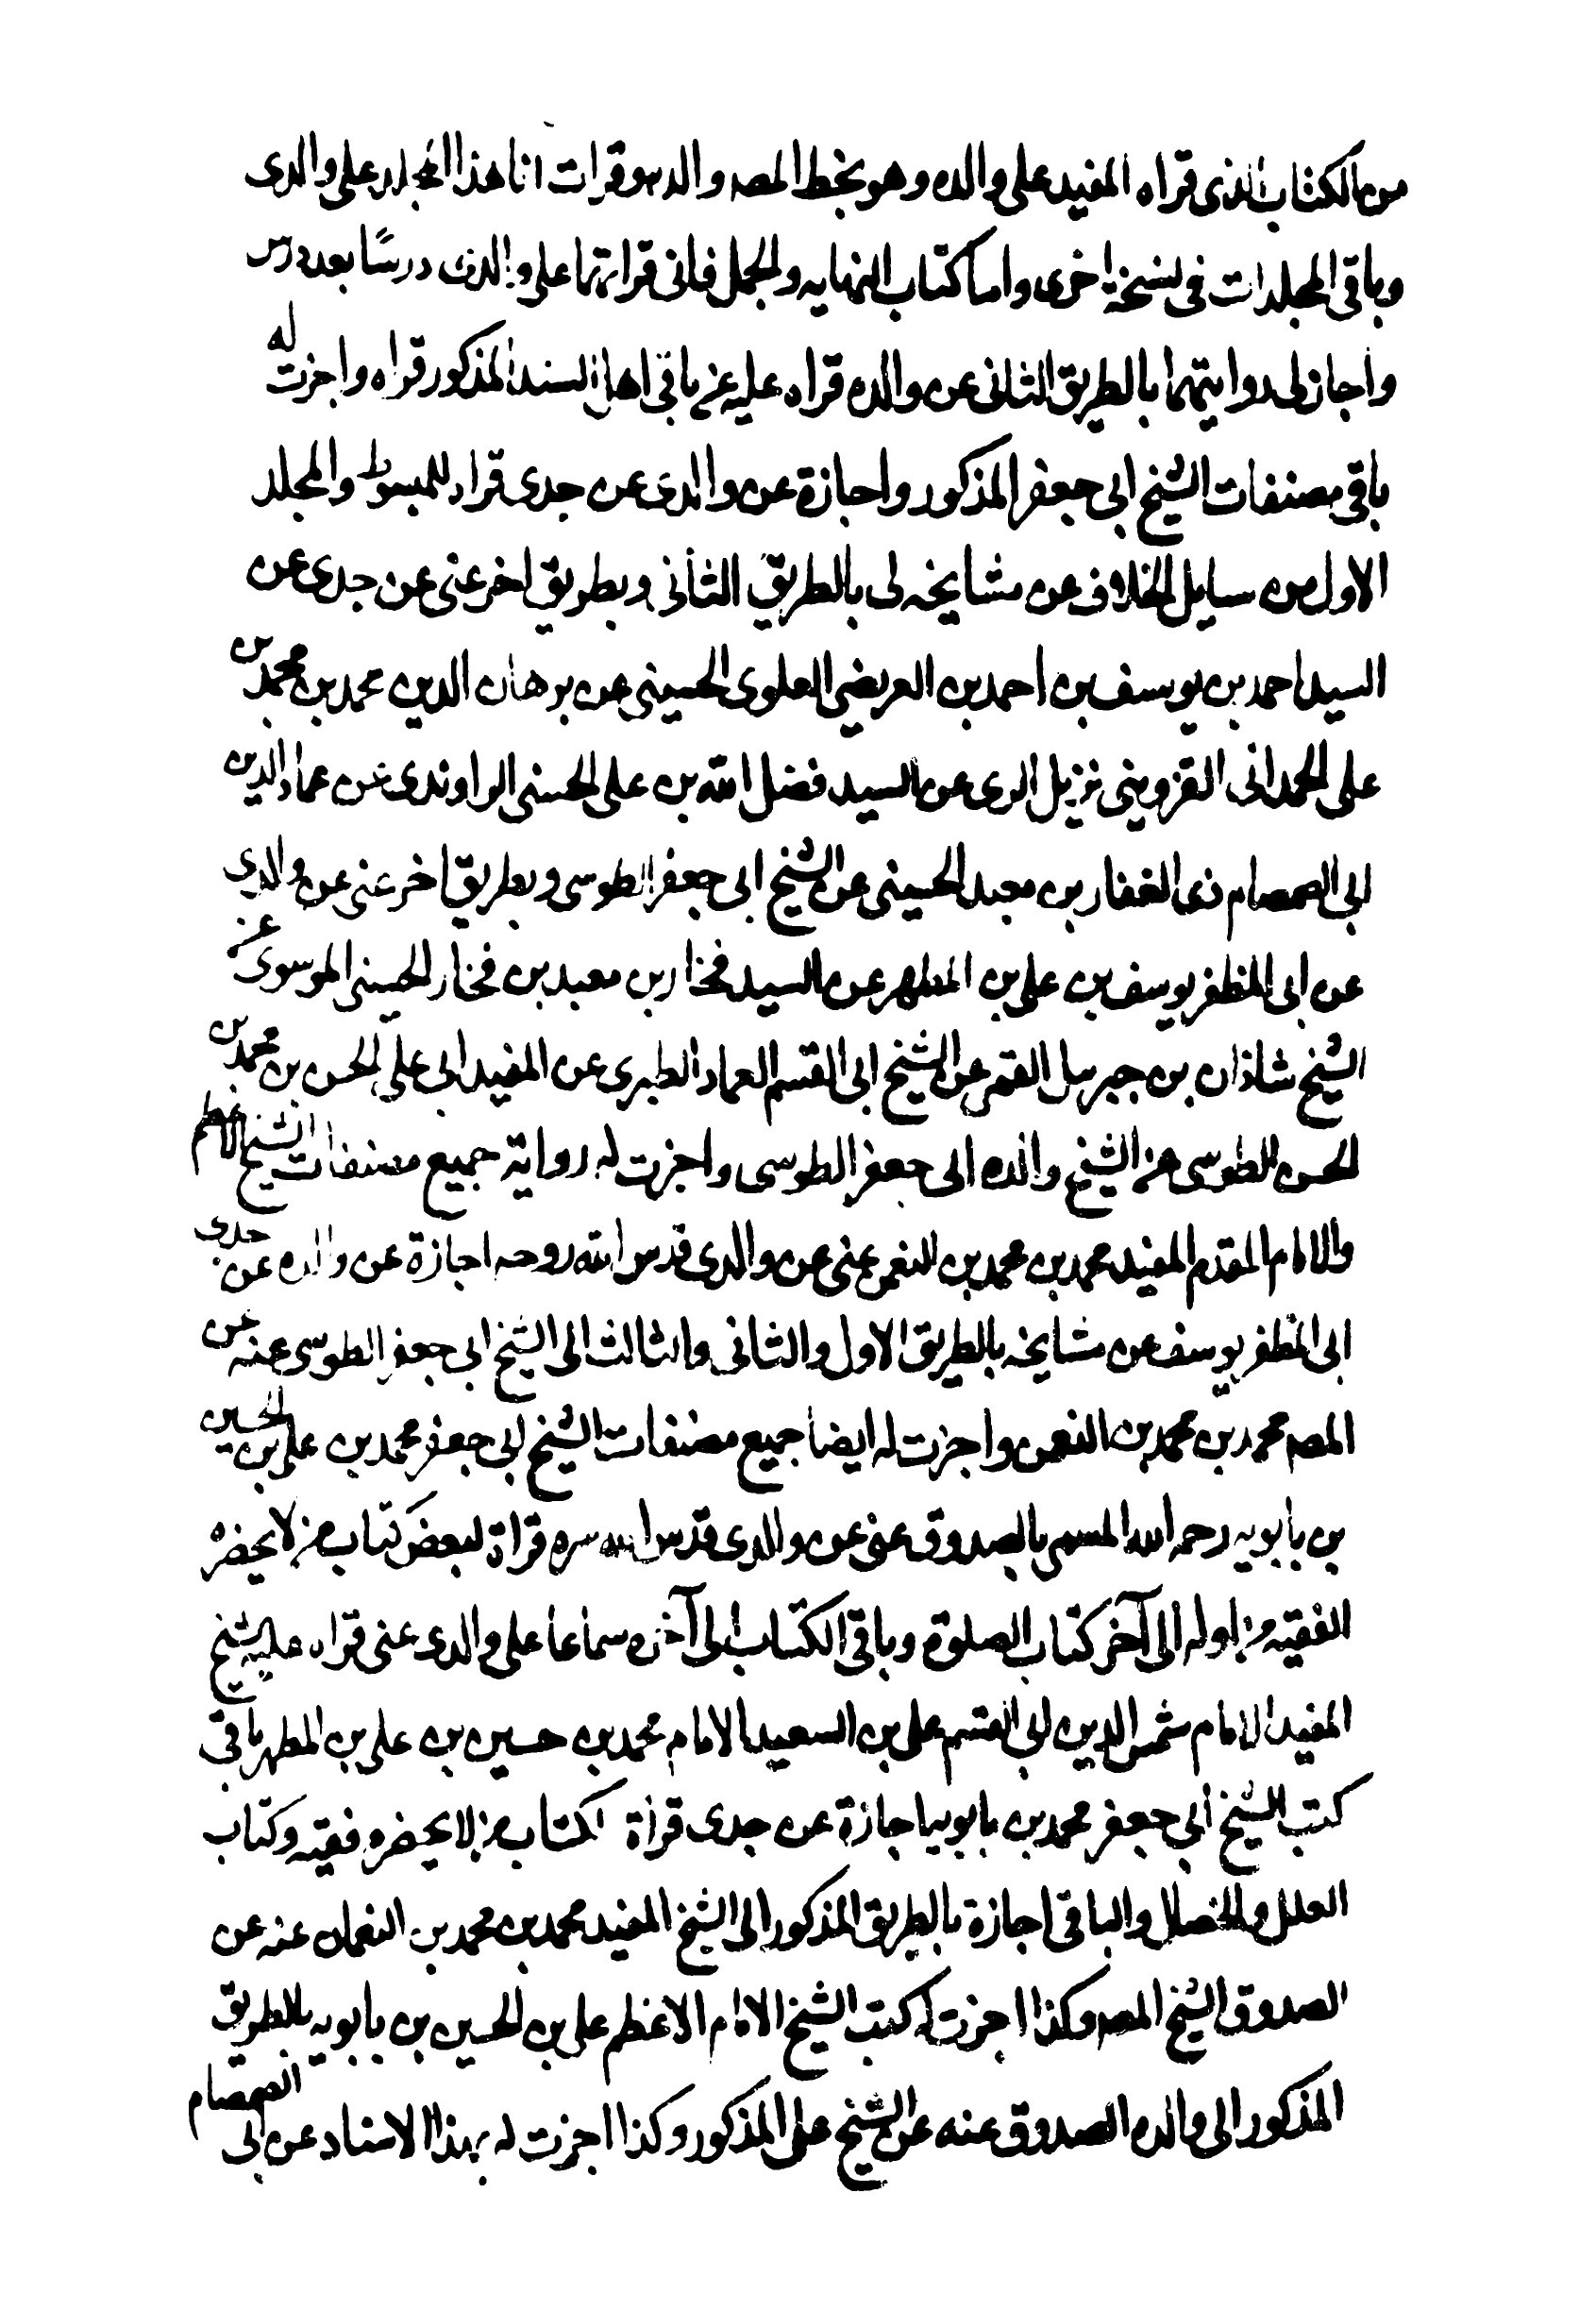 من الكتاب الذى قراه المفيد على والده وهو بخط المصه والد هو قرات انا هذا المجلد على والدى
وباقى المجلدات فى نسخة اخرى واما كتاب النهايه والجمل فانى قراتهما على والدى درسًا بعد درس
واجاز لى روايتهما بالطريق الثانى عن والده قراه عليه عن باقى اهل السند المذكور قراه واجزت له
باقى مصنفات الشيخ ابى جعفر المذكور واجازة عن والدى عن جدى قراه للمبسوط والمجلد
الاول من سايل الخلاف عن مشايخه لى بالطريق الثانى وبطريق اخر عنى عن جدى عن
السيد احمد بن يوسف بن احمد بن العريضى العلوى الحسينى عن برهان الدين محمد بن محمد بن
على الحمدانى القزوينى نزيل الرى عن السيد فضل الله بن على الحسنى الراوندى عن عماد الدين
ابى الصمصام ذى الفقار بن معبد الحسينى عن الشيخ ابى جعفر الطوسى وبطريق اخر عنى عن والدى
عن ابى المظفر يوسف بن على بن المطهر عن السيد فخار بن معبد بن فخار الحسينى الموسوى عن
الشيخ شاذان بن جبرىل القمى عن الشيخ ابى القسم العماد الطبرى عن المفيد ابى على الحسن بن محمد بن
الحسن الطوسى عن الشيخ والده ابى جعفر الطوسى واجزت له رواية جميع مصنفات الشيخ الاعظم
والامام المقدم المفيد محمد بن محمد بن النعمن عنى عن والدى قدس الله روحه اجازة عن والده عن جدى
ابى المظفر يوسف عن مشايخه بالطريق الاول والثانى والثالث الى الشيخ ابى جعفر الطوسى عنه عن
المصه محمد بن محمد بن النعمن واجزت له ايضا جميع مصنفات الشيخ ابى جعفر محمد بن على بن الحسين
بن بابويه رحمه الله المسمى بالصدوق عنى عن والدى قدس الله سره قراة لبعض كتاب من لا يحضره
الفقيه من اوله الى آخر كتاب الصلوة وباقى الكتاب الى آخره سماعا على والدى عنى قراه عليه شيخ
المفيد الامام شمس الدين ابى القسم على بن السعيد الامام محمد بن حسين بن على بن المطهر باقى
كتب الشيخ ابى جعفر محمد بن بابويه اجازة عن جدى قراة لكتاب من لا يحضره فقيه وكتاب
العلل والخصال والباقى اجازة بالطريق المذكور الى الشيخ المفيد محمد بن محمد بن النعمان عنه عن
الصدوق الشيخ المصه وكذا اجزت له كتب الشيخ الامام الاعظم على بن الحسين بن بابويه بالطريق
المذكور الى والده الصدوق عنه عن الشيخ على المذكور وكذا اجزت له بهذا الاسناد عن ابى الصمصام